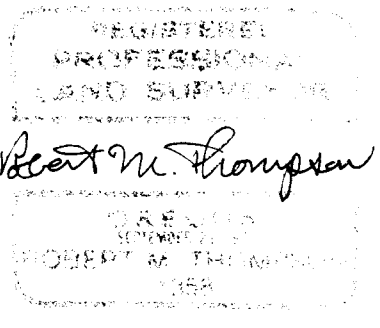 REGISTERED
PROFESSIONAL
LAND SURVEYOR
Robert M. Thompson
OREGON
ROBERT M. THOMPSON